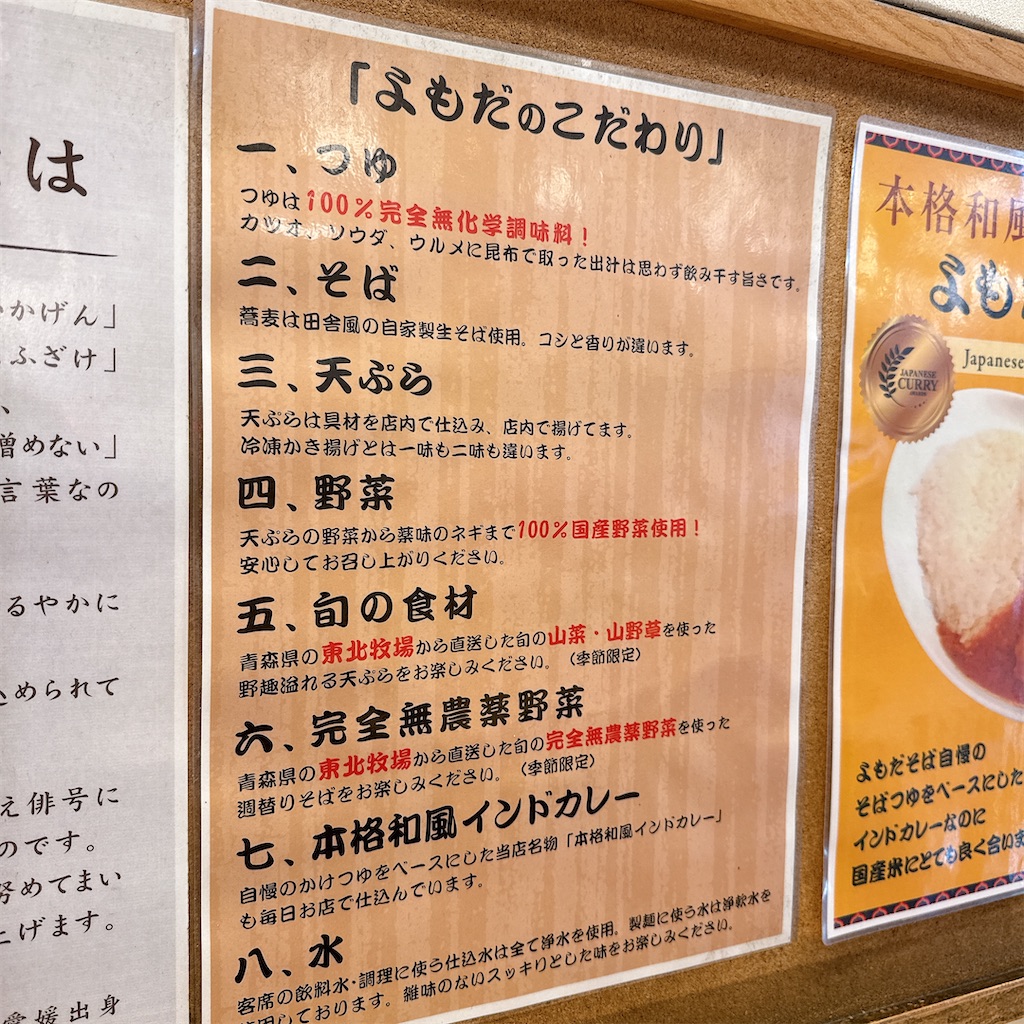 は
かげん」
ふざけ」
、
憎めない」
言葉なの
るやかに
められて
え俳号に
のです。
努めてまい
上げます。
愛媛出身
「よもだのこだわり」
一、つゆ
つゆは100%完全無化学調味料！
カツオ、ソウダ、ウルメに昆布で取った出汁は思わず飲み干す旨さです。
二、そば
蕎麦は田舎風の自家製生そば使用。コシと香りが違います。
三、天ぷら
天ぷらは具材を店内で仕込み、店内で揚げてます。
冷凍かき揚げとは一味も二味も違います。
四、野菜
天ぷらの野菜から薬味のネギまで100%国産野菜使用！
安心してお召し上がりください。
五、旬の食材
青森県の東北牧場から直送した旬の山菜・山野草を使った
野趣溢れる天ぷらをお楽しみください。（季節限定）
六、完全無農薬野菜
青森県の東北牧場から直送した旬の完全無農薬野菜を使った
週替りそばをお楽しみください。（季節限定）
七、本格和風インドカレー
自慢のかけつゆをベースにした当店名物「本格和風インドカレー」
も毎日お店で仕込んでいます。
八、水
客席の飲料水・調理に使う仕込水は全て浄水を使用。製麺に使う水は浄軟水を
使用しております。雑味のないスッキリとした味をお楽しみください。
本格和風
よも
Japanese
JAPANESE
CURRY
AWARDS
よもだそば自慢の
そばつゆをベースにした
インドカレーなのに
国産米にとても良く合いま